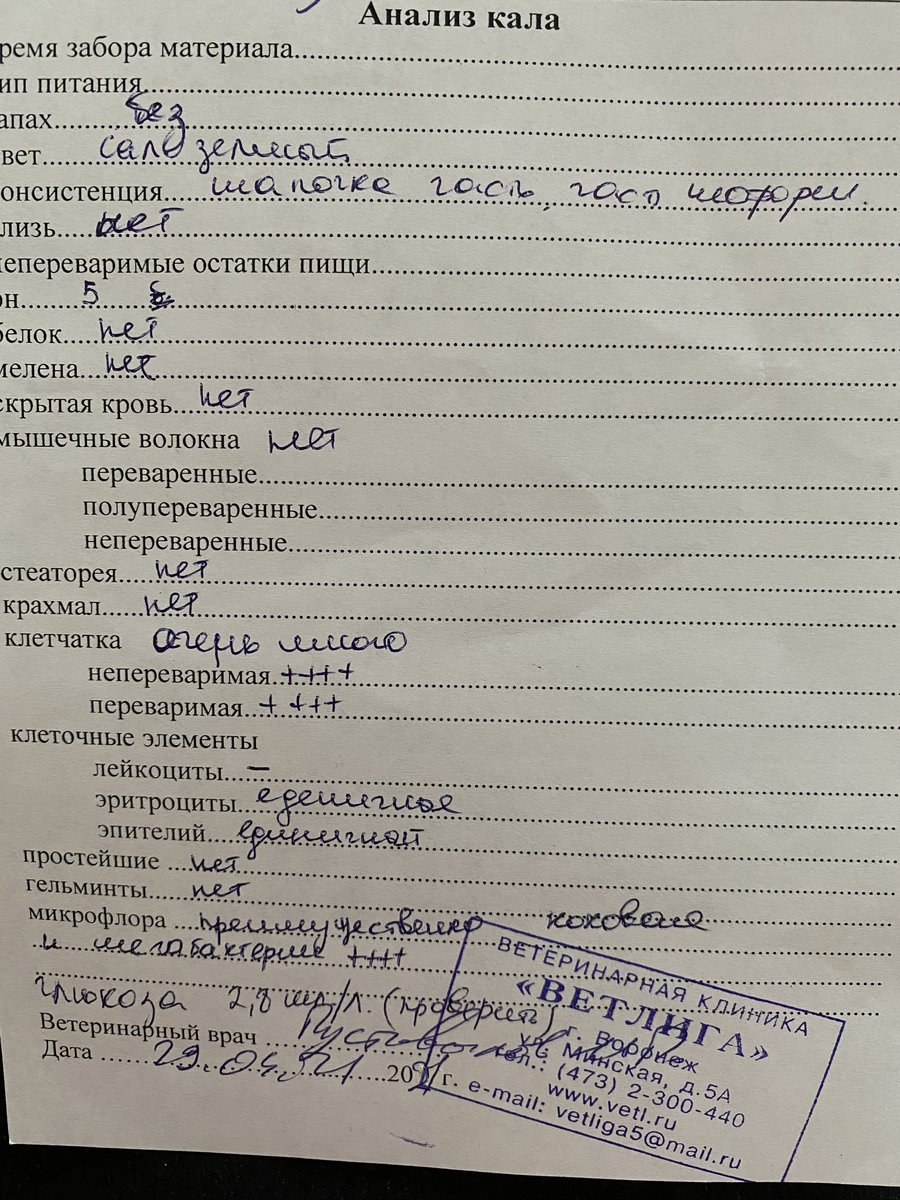 Анализ кала
ремя забора материала
ип питания
апах без
вет сало зелный
онсистенция шапочка часть, част неоформ.
лизь нет
непереваримые остатки пищи
он 5
белок нет
мелена нет
скрытая кровь нет
мышечные волокна нет
переваренные
полупереваренные
непереваренные
стеаторея нет
крахмал нет
клетчатка очень много
непереваримая ++++
переваримая ++++
клеточные элементы
лейкоциты –
эритроциты еденичное
эпителий единичный
простейшие нет
гельминты нет
микрофлора преимущественно кокковая
и мегабактерии ++++
глюкоза 2,8 (проверить)
Ветеринарный врач
Дата 29.04.21 2021 г.
ВЕТЕРИНАРНАЯ КЛИНИКА
«ВЕТЛИГА»
г. Воронеж
ул. Минская, д.5А
тел.: (473) 2-300-440
www.vetl.ru
e-mail: vetliga5@mail.ru